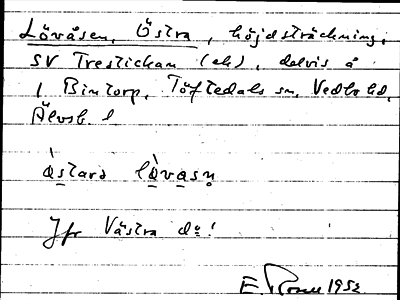 Lövåsen, Östra, höjdsträckning,
SV Trestickan (ek), delvis å
1 Bintorp, Töftedals sn, Vedbo hd,
Älvsb. l
östara lövasn
Jfr Västra do!
E 1952